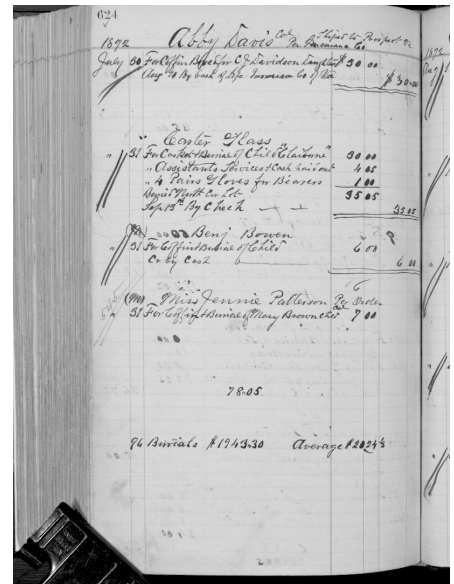 624
1892 Abby Davis Col Shipd to Prospect Va
Per Insurance Co
July 30 For Coffin Box &c for C J Davidson $30 00
Aug 10 By Cash of Life Insurance Co of Va $30.00
" Carter Glass
" 31 For Casket & Burial of Child "Claiborne" 30 00
" Assistants Services & Cash laid out 4 05
" 4 Pairs Gloves for Bearers 1 00
Buried North Cor Lot 35 05
Sep 13th By Check 35 05
Benj Bowen
" 31 For Coffin & Burial of Child 6 00
Cr by Cash 6 00
Miss Jennie Patterson Per Order
" 31 For Coffin & Burial of Mary Brown Col 7 00
78.05
96 Burials $1943.30 Average $20 24
1892
Aug